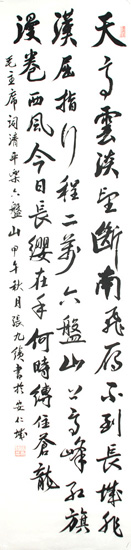 天高雲淡望斷南飛雁不到長城非
漢屈指行程二萬六盤山上高峰紅旗
漫卷西風今日長纓在手何時縛住蒼龍
毛主席詞清平樂六盤山甲午秋月張九書於安仁城